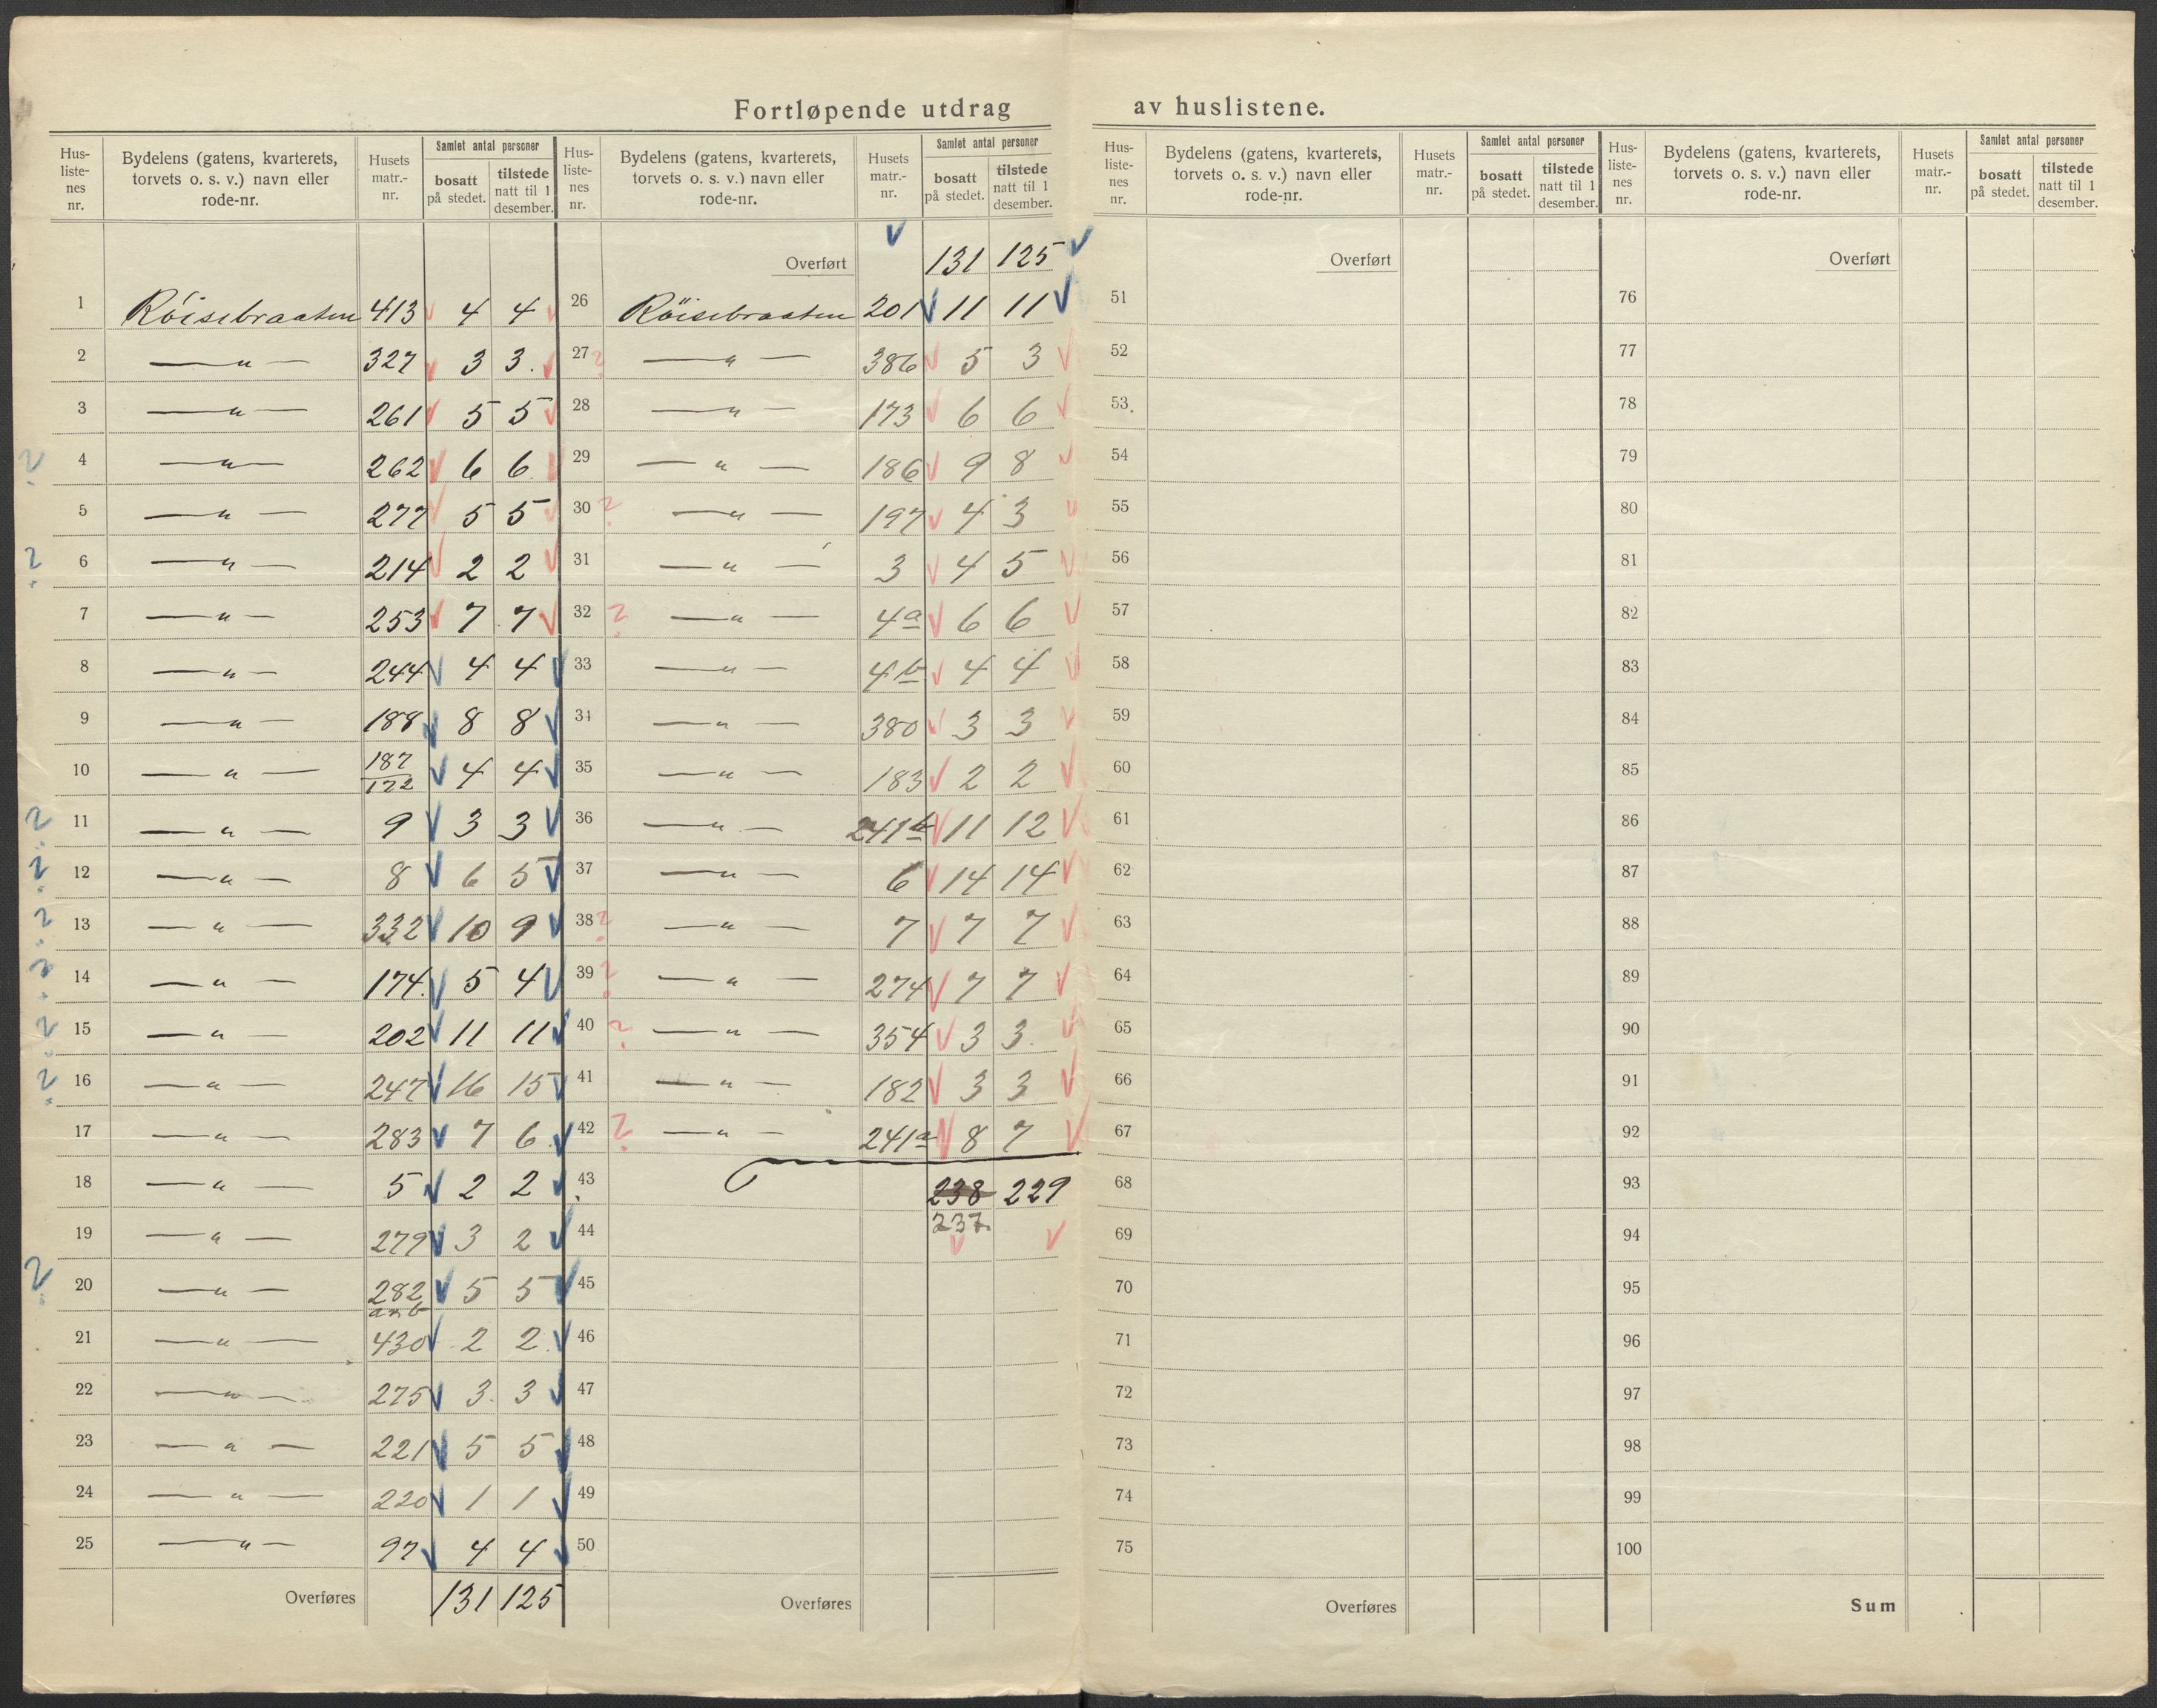 Fortløpende utdrag av huslistene.
Hus-listenes nr. | Bydelens (gatens, kvarterets, torvets o. s. v.) navn eller rode-nr. | Husets matr.-nr. | Samlet antal personer | bosatt på stedet. | tilstede natt til 1 desember.
1 Röisebraaten 413 4 4
2 —„— 327 3 3.
3 —„— 261 5 5
? 4 —„— 262 6 6
5 —„— 277 5 5
? 6 —„— 214 2 2
7 —„— 253 7 7
8 —„— 244 4 4
9 —„— 188 8 8
10 —„— 187/172 4 4
? 11 —„— 9 3 3
? 12 —„— 8 6 5
? 13 —„— 332 10 9
? 14 —„— 174. 5 4
? 15 —„— 202 11 11
? 16 —„— 247 16 15
17 —„— 283 7 6
18 —„— 5 2 2
19 —„— 279 3 2
? 20 —„— 282 5 5
21 —„— 430 2 2
22 —„— 275 3 3
23 —„— 221 5 5
24 —„— 220 1 1
25 —„— 97 4 4
Overføres 131 125
Hus-listenes nr. | Bydelens (gatens, kvarterets, torvets o. s. v.) navn eller rode-nr. | Husets matr.-nr. | Samlet antal personer | bosatt på stedet. | tilstede natt til 1 desember.
Overført 131 125
26 Röisebraaten 201 11 11
27 ? —„— 386 5 3
28 —„— 173 6 6
29 —„— 186 9 8
30 ? —„— 197 4 3
31 —„— 3 4 5
32 ? —„— 4a 6 6
33 —„— 4b 4 4
34 —„— 380 3 3
35 —„— 183 2 2
36 —„— 241b 11 12
37 —„— 6 14 14
38 ? —„— 7 7 7
39 ? —„— 274 7 7
40 ? —„— 354 3 3
41 —„— 182 3 3
42 ? —„— 241a 8 7
43 238 229
44 237.
45
46
47
48
49
50
Overføres
Hus-listenes nr. | Bydelens (gatens, kvarterets, torvets o. s. v.) navn eller rode-nr. | Husets matr.-nr. | Samlet antal personer | bosatt på stedet. | tilstede natt til 1 desember.
Overført
51
52
53.
54
55
56
57
58
59
60
61
62
63
64
65
66
67
68
69
70
71
72
73
74
75
Overføres
Hus-listenes nr. | Bydelens (gatens, kvarterets, torvets o. s. v.) navn eller rode-nr. | Husets matr.-nr. | Samlet antal personer | bosatt på stedet. | tilstede natt til 1 desember.
Overført
76
77
78
79
80
81
82
83
84
85
86
87
88
89
90
91
92
93
94
95
96
97
98
99
100
Sum